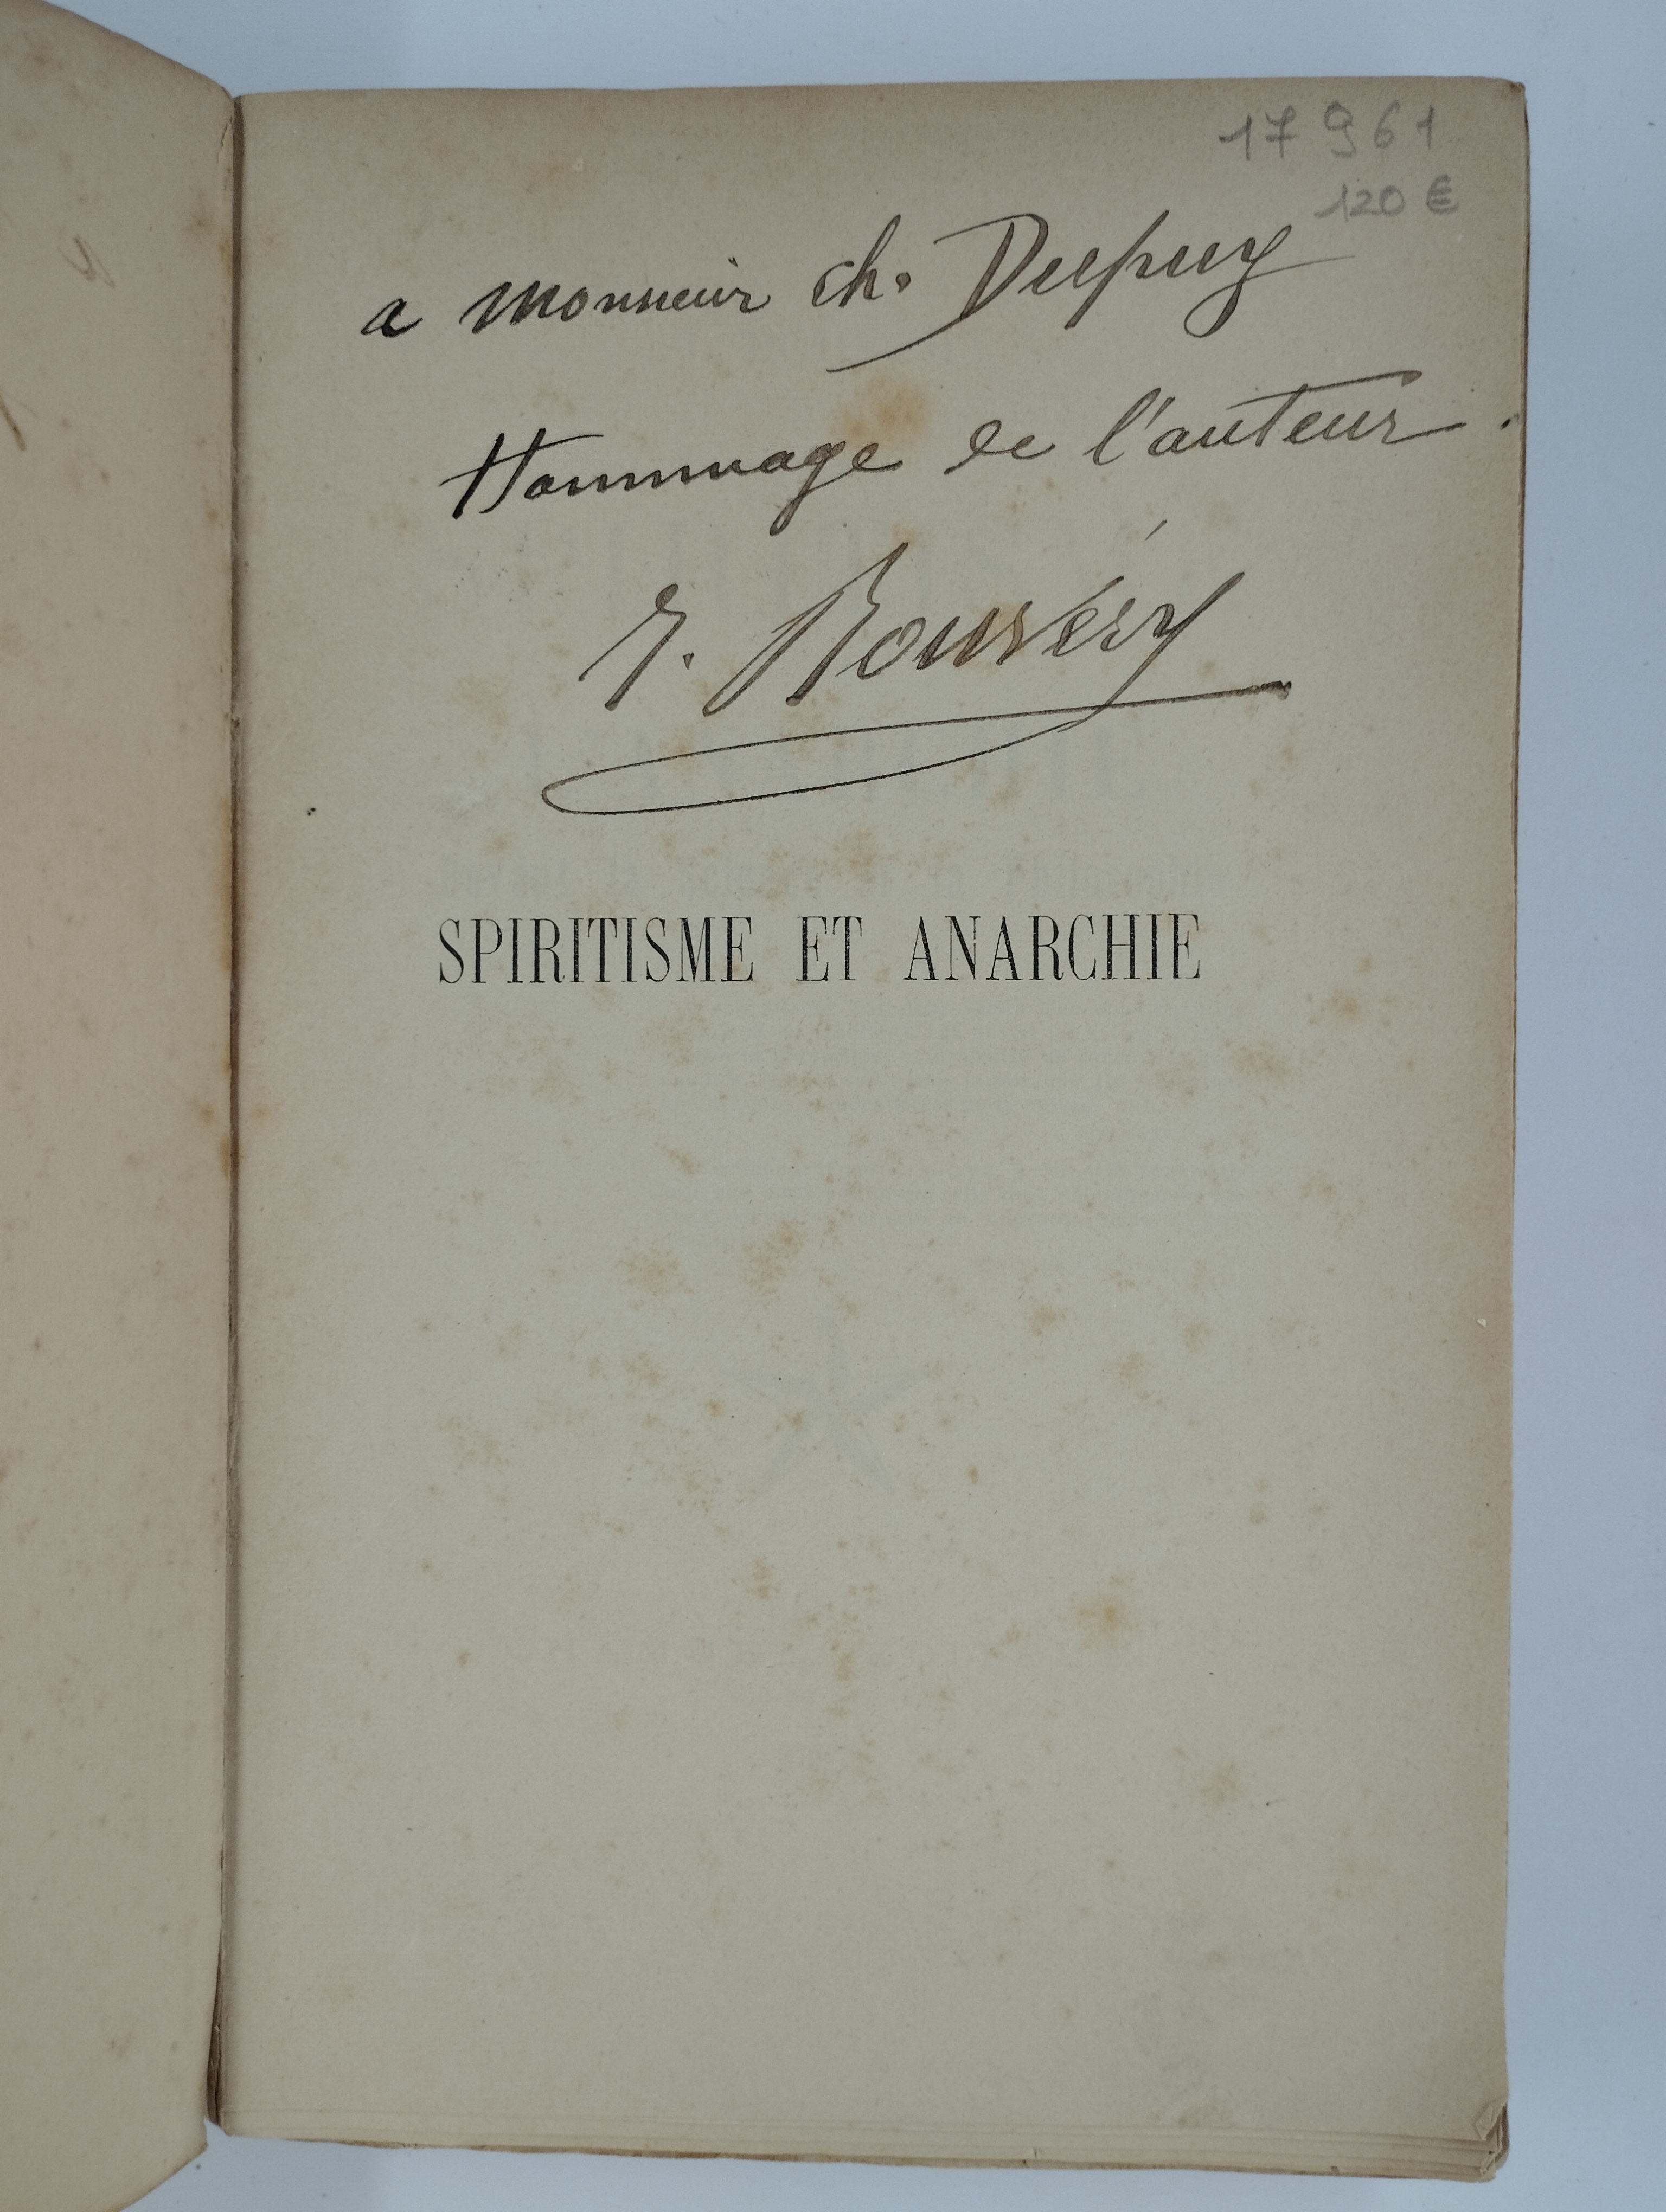 17 961
120 €
a Monsieur Ch. Dupuy
Hommage de l'auteur.
J. Bouvéry
SPIRITISME ET ANARCHIE